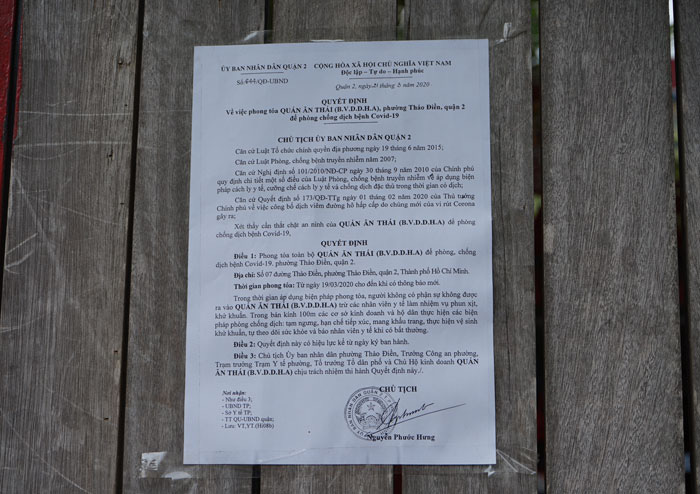 ỦY BAN NHÂN DÂN QUẬN 2 CỘNG HÒA XÃ HỘI CHỦ NGHĨA VIỆT NAM
Độc lập – Tự do – Hạnh phúc
/QĐ-UBND
Quận 2, ngày tháng 3 năm 2020
QUYẾT ĐỊNH
Về việc phong tỏa QUÁN ÂN THÁI (B.V.D.D.H.A), phường Thảo Điền, quận 2
để phòng chống dịch bệnh Covid-19
CHỦ TỊCH ỦY BAN NHÂN DÂN QUẬN 2
Căn cứ Luật Tổ chức chính quyền địa phương ngày 19 tháng 6 năm 2015;
Căn cứ Luật Phòng, chống bệnh truyền nhiễm năm 2007;
Căn cứ Nghị định số 101/2010/NĐ-CP ngày 30 tháng 9 năm 2010 của Chính phủ
quy định chi tiết một số điều của Luật Phòng, chống bệnh truyền nhiễm về áp dụng biện
pháp cách ly y tế, cưỡng chế cách ly y tế và chống dịch đặc thù trong thời gian có dịch;
Căn cứ Quyết định số 173/QĐ-TTg ngày 01 tháng 02 năm 2020 của Thủ tướng
Chính phủ về việc công bố dịch viêm đường hô hấp cấp do chủng mới của vi rút Corona
gây ra;
Xét thấy cần thắt chặt an ninh của QUÁN ÂN THÁI (B.V.D.D.H.A) để phòng
chống dịch bệnh Covid-19,
QUYẾT ĐỊNH
Điều 1: Phong tỏa toàn bộ QUÁN ÂN THÁI (B.V.D.D.H.A) để phòng, chống
dịch bệnh Covid-19. phường Thảo Điền, quận 2.
Địa chỉ: Số 07 đường Thảo Điền, phường Thảo Điền, quận 2, Thành phố Hồ Chí Minh.
Thời gian phong tỏa: Từ ngày 19/03/2020 cho đến khi có thông báo mới.
Trong thời gian áp dụng biện pháp phong tỏa, người không có phận sự không được
ra vào QUÁN ÂN THÁI (B.V.D.D.H.A) trừ các nhân viên y tế làm nhiệm vụ phun xịt,
khử khuẩn. Trong bán kính 100m các cơ sở kinh doanh và hộ dân thực hiện các biện
pháp phòng chống dịch: tạm ngưng, hạn chế tiếp xúc, mang khẩu trang, thực hiện vệ sinh
khử khuẩn, tự theo dõi sức khỏe và báo nhân viên y tế khi có bất thường.
Điều 2: Quyết định này có hiệu lực kể từ ngày ký ban hành.
Điều 3: Chủ tịch Ủy ban nhân dân phường Thảo Điền, Trưởng Công an phường,
Trạm trưởng Trạm Y tế phường, Tổ trưởng Tổ dân phố và Chủ Hộ kinh doanh QUÁN
ÂN THÁI (B.V.D.D.H.A) chịu trách nhiệm thi hành Quyết định này./.
Nơi nhận:
- Như điều 3;
- UBND TP;
- Sở Y tế TP;
- TT QU-UBND quận;
- Lưu: VT,YT.(Hi08b)
CHỦ TỊCH
Nguyễn Phước Hưng